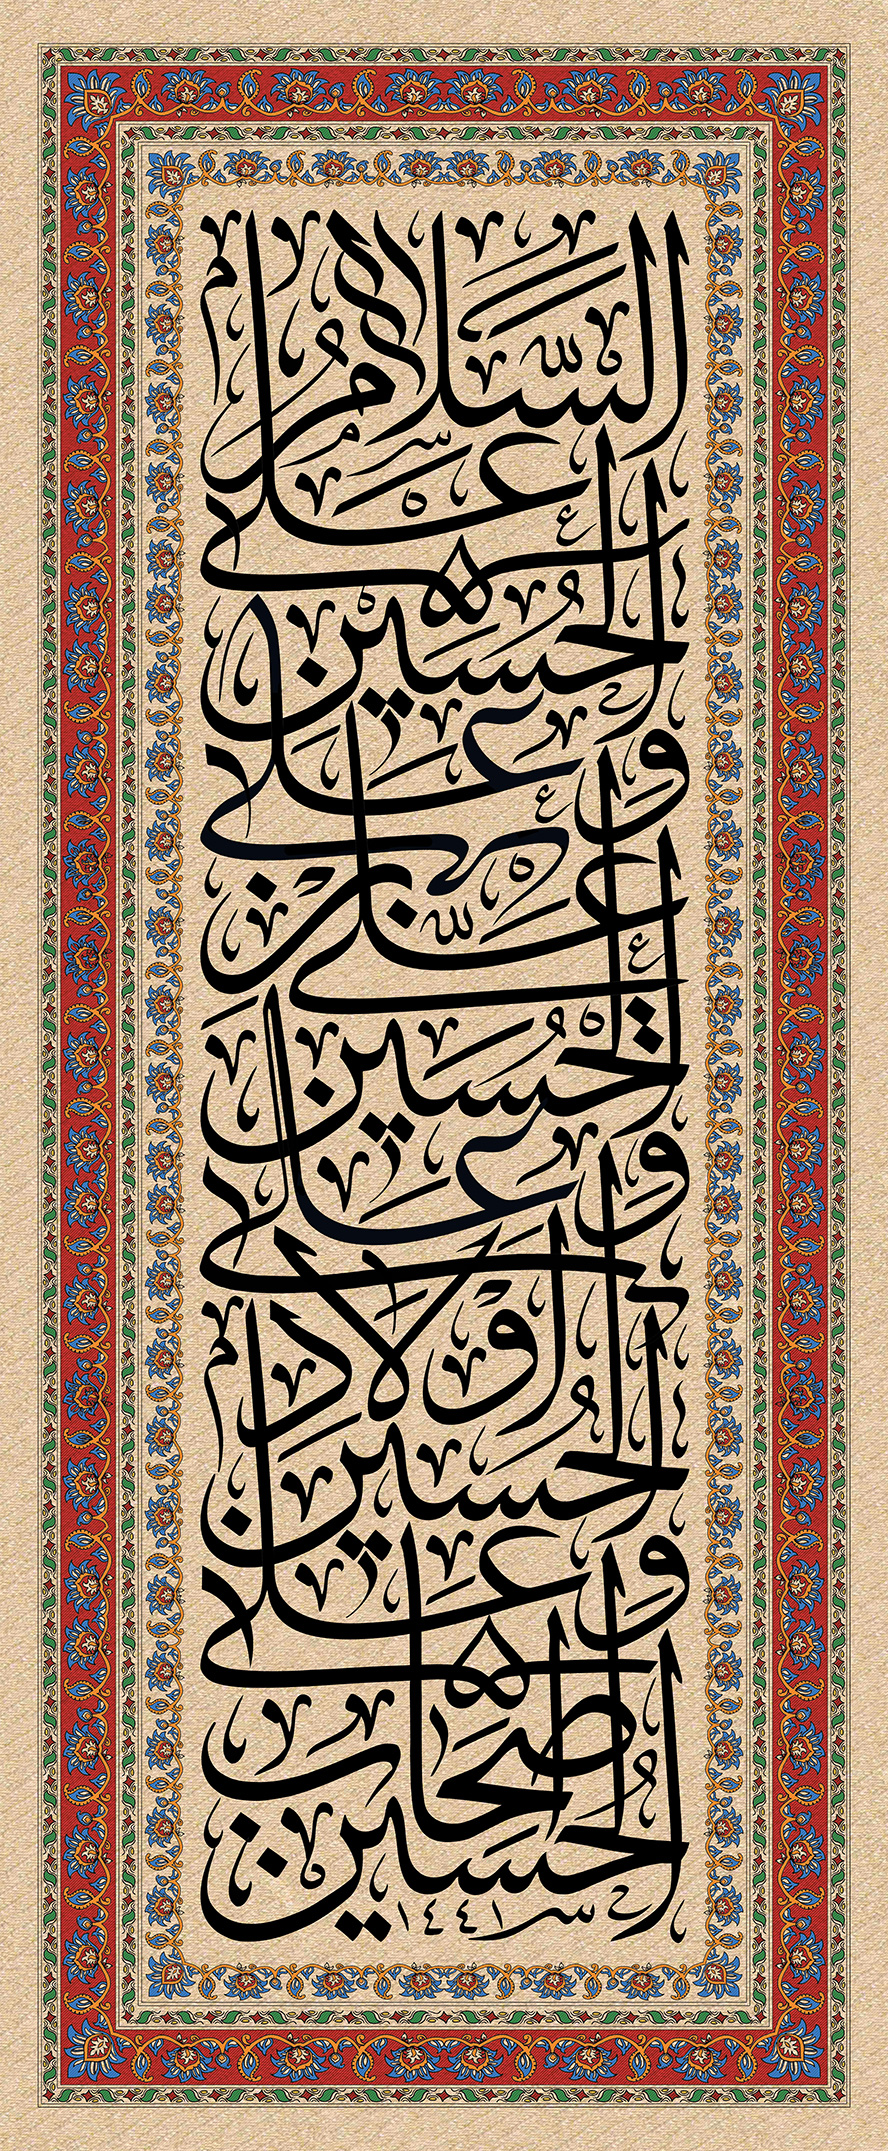 السَّلامُ
على
الحُسَين
وَعلى
عَلَّى بن
الحُسَين
وَعلى
اَولاد
الحُسَين
وَعلى
اَصحاب
الحُسَين
١٤٤١